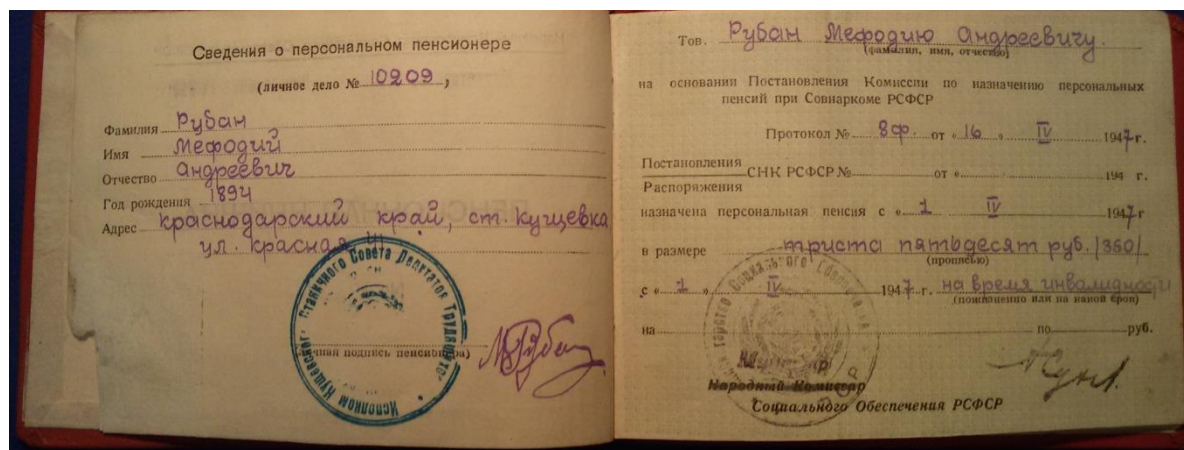 Сведения о персональном пенсионере
(личное дело № 10209)
Фамилия Рубан
Имя Мефодий
Отчество Андреевич
Год рождения 1894
Адрес краснодарский край, ст. Кущевка
ул. красная 41
Исполком Кущевског Станичного Совета Депутатов Трудящихся
(личная подпись пенсионера)
М Рубан
Тов. Рубан Мефодию Андреевичу.
(фамилия, имя, отчество)
на основании Постановления Комиссии по назначению персональных
пенсий при Совнаркоме РСФСР
Протокол № 8ф. от « 16 » IV 1947 г.
Постановления
СНК РСФСР № от « 194 г.
Распоряжения
назначена персональная пенсия с « 1 IV 1947 г
в размере триста пятьдесят руб. /350/
(прописью)
с « 1 » IV 1947 г. на время инвалидности
(пожизненно или на какой срок)
на по руб.
Народный Комиссар
Социального Обеспечения РСФСР